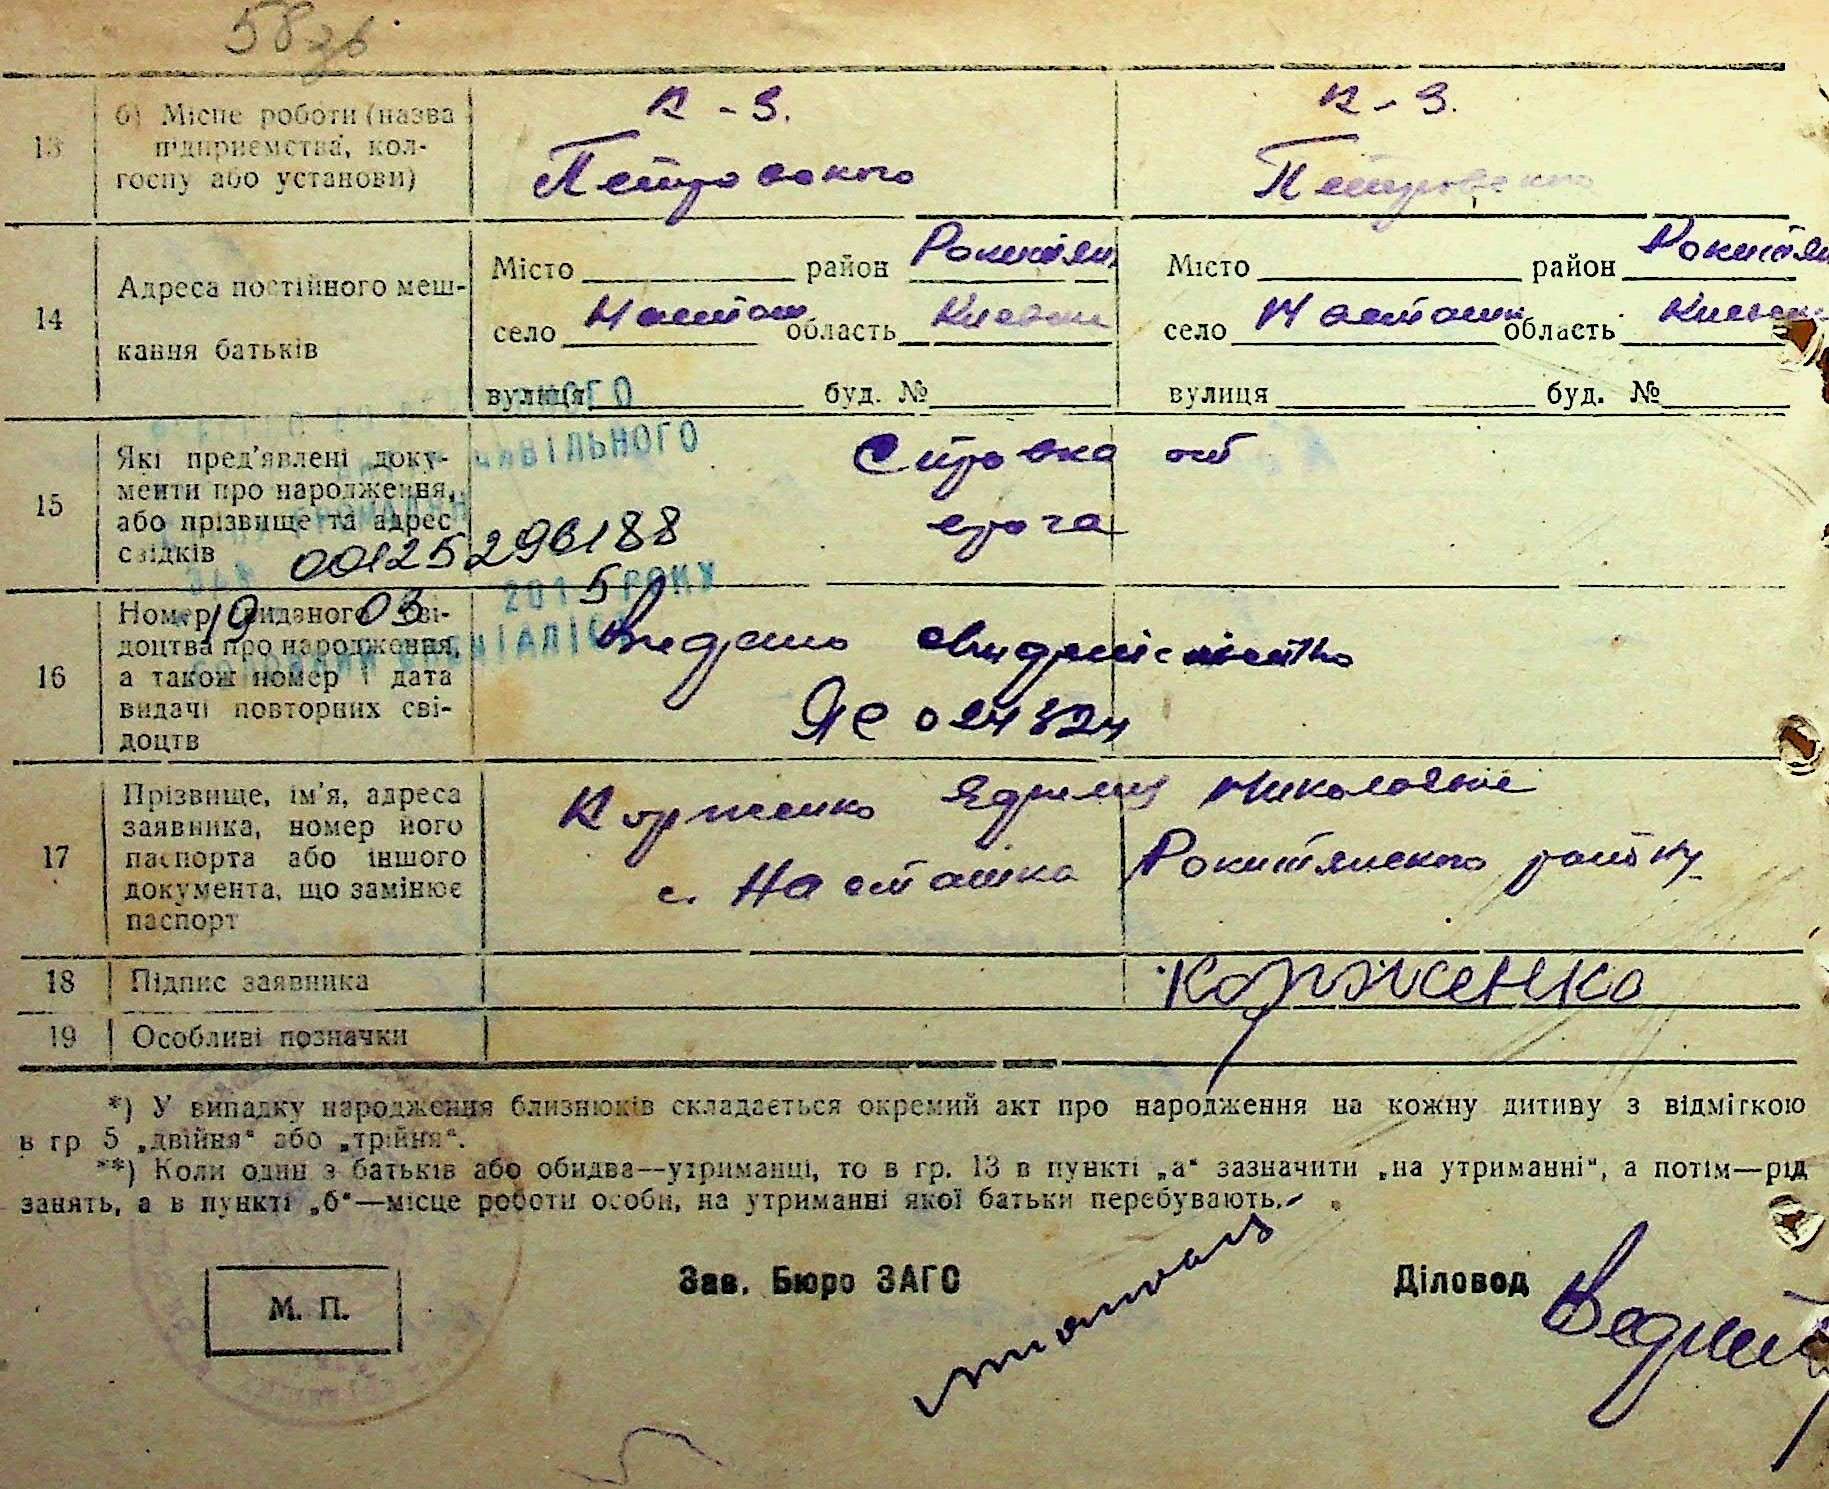 58 зв
13 б) Місце роботи (назва підприємства, кол-госпу або установи)
К-З. Петровского
К-З. Петровского
14 Адреса постійного меш-кання батьків
Місто район Рокитян
село Насташ область Киевск
вулиця буд. №
Місто район Рокитян
село Насташк область Киевск
вулиця буд. №
15 Які пред'явлені доку-менти про народження, або прізвище та адрес свідків
Справка от
врача
ЦИВІЛЬНОГО
00125296188
2015 РОКУ
19 03
16 Номер виданого сві-доцтва про народження, а також номер і дата видачі повторних сві-доцтв
Видано
ЯС 024324
17 Прізвище, ім'я, адреса заявника, номер його паспорта або іншого документа, що замінює паспорт
Корженко Николаевне
с. Насташка Рокитянского району
18 Підпис заявника
Корженко
19 Особливі позначки
*) У випадку народження близнюків складається окремий акт про народження на кожну дитину з відміткою
в гр 5 „двійня" або „трійня".
**) Коли один з батьків або обидва—утриманці, то в гр. 13 в пункті „а" зазначити „на утриманні", а потім—рід
занять, а в пункті „б"—місце роботи особи, на утриманні якої батьки перебувають.
Зав. Бюро ЗАГС
Діловод
М. П.